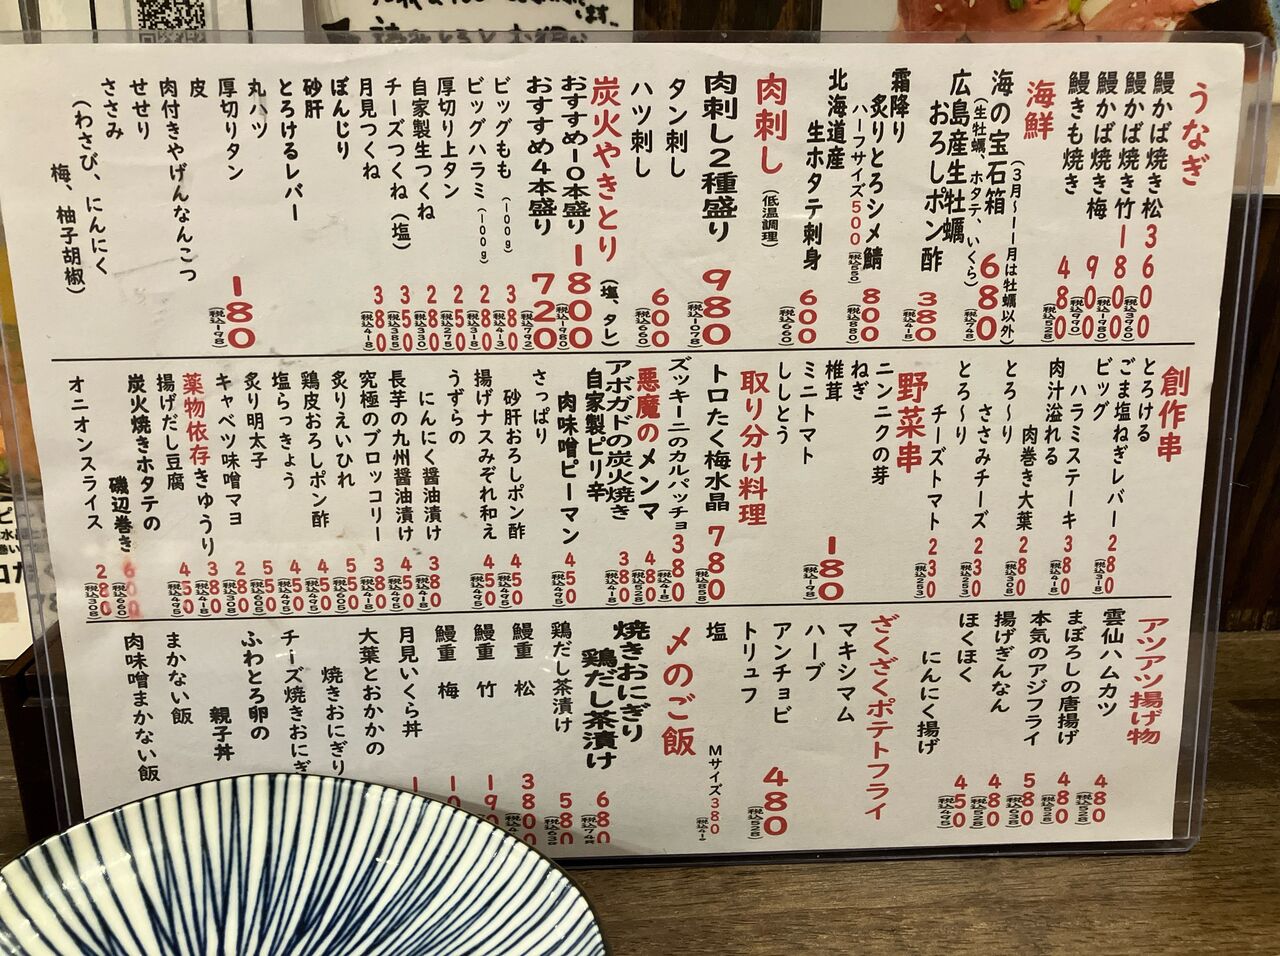 うなぎ
鰻かば焼き松 3600 (税込3960)
鰻かば焼き竹 1800 (税込1980)
鰻かば焼き梅 900 (税込990)
鰻きも焼き 480 (税込528)
海鮮
(3月〜11月は牡蠣以外)
海の宝石箱 680 (税込748)
(生牡蠣、ホタテ、いくら)
広島産生牡蠣
おろしポン酢 380 (税込418)
霜降り
炙りとろシメ鯖 800 (税込880)
ハーフサイズ500 (税込550)
北海道産
生ホタテ刺身 600 (税込660)
肉刺し (低温調理)
肉刺し2種盛り 980 (税込1078)
タン刺し
ハツ刺し 600 (税込660)
炭火やきとり (塩、タレ)
おすすめ10本盛り 1800 (税込1980)
おすすめ4本盛り 720 (税込792)
ビッグもも (100g) 380 (税込413)
ビッグハラミ (100g) 280 (税込310)
厚切り上タン 250 (税込275)
自家製生つくね 280 (税込330)
チーズつくね (塩) 350 (税込385)
月見つくね 380 (税込418)
ぼんじり
砂肝
とろけるレバー
丸ハツ
厚切りタン 180 (税込198)
皮
肉付きやげんなんこつ
せせり
ささみ
(わさび、にんにく
梅、柚子胡椒)
創作串
とろける
ごま塩ねぎレバー 280 (税込31)
ビッグ
ハラミステーキ 380 (税込418)
肉汁溢れる
肉巻き大葉 280 (税込308)
とろ〜り
ささみチーズ 230 (税込253)
とろ〜り
チーズトマト 230 (税込253)
野菜串
ニンニクの芽
ねぎ
椎茸 180 (税込198)
ミニトマト
ししとう
取り分け料理
トロたく梅水晶 780 (税込858)
ズッキーニのカルパッチョ 380 (税込418)
悪魔のメンマ 480 (税込528)
アボガドの炭火焼き 380 (税込418)
自家製ピリ辛
肉味噌ピーマン 450 (税込495)
さっぱり
砂肝おろしポン酢 450 (税込495)
揚げナスみぞれ和え 450 (税込495)
うずらの
にんにく醤油漬け 380 (税込418)
長芋の九州醤油漬け 450 (税込495)
究極のブロッコリー 380 (税込418)
炙りえいひれ 550 (税込605)
鶏皮おろしポン酢 450 (税込495)
塩らっきょう 450 (税込495)
炙り明太子 550 (税込605)
キャベツ味噌マヨ 280 (税込308)
薬物依存きゅうり 380 (税込418)
揚げだし豆腐 450 (税込495)
炭火焼きホタテの
磯辺巻き 600 (税込660)
オニオンスライス 280 (税込308)
アツアツ揚げ物
雲仙ハムカツ 480 (税込528)
まぼろしの唐揚げ 480 (税込528)
本気のアジフライ 580 (税込638)
揚げぎんなん 480 (税込528)
ほくほく
にんにく揚げ 450 (税込495)
ざくざくポテトフライ
マキシマム
ハーブ
アンチョビ 480 (税込528)
トリュフ
塩 Mサイズ380 (税込41)
〆のご飯
焼きおにぎり
鶏だし茶漬け 680 (税込748)
鶏だし茶漬け 580 (税込638)
鰻重 松 3800
鰻重 竹
鰻重 梅
月見いくら丼
大葉とおかかの
焼きおにぎり
チーズ焼きおにぎ
ふわとろ卵の
親子丼
まかない飯
肉味噌まかない飯